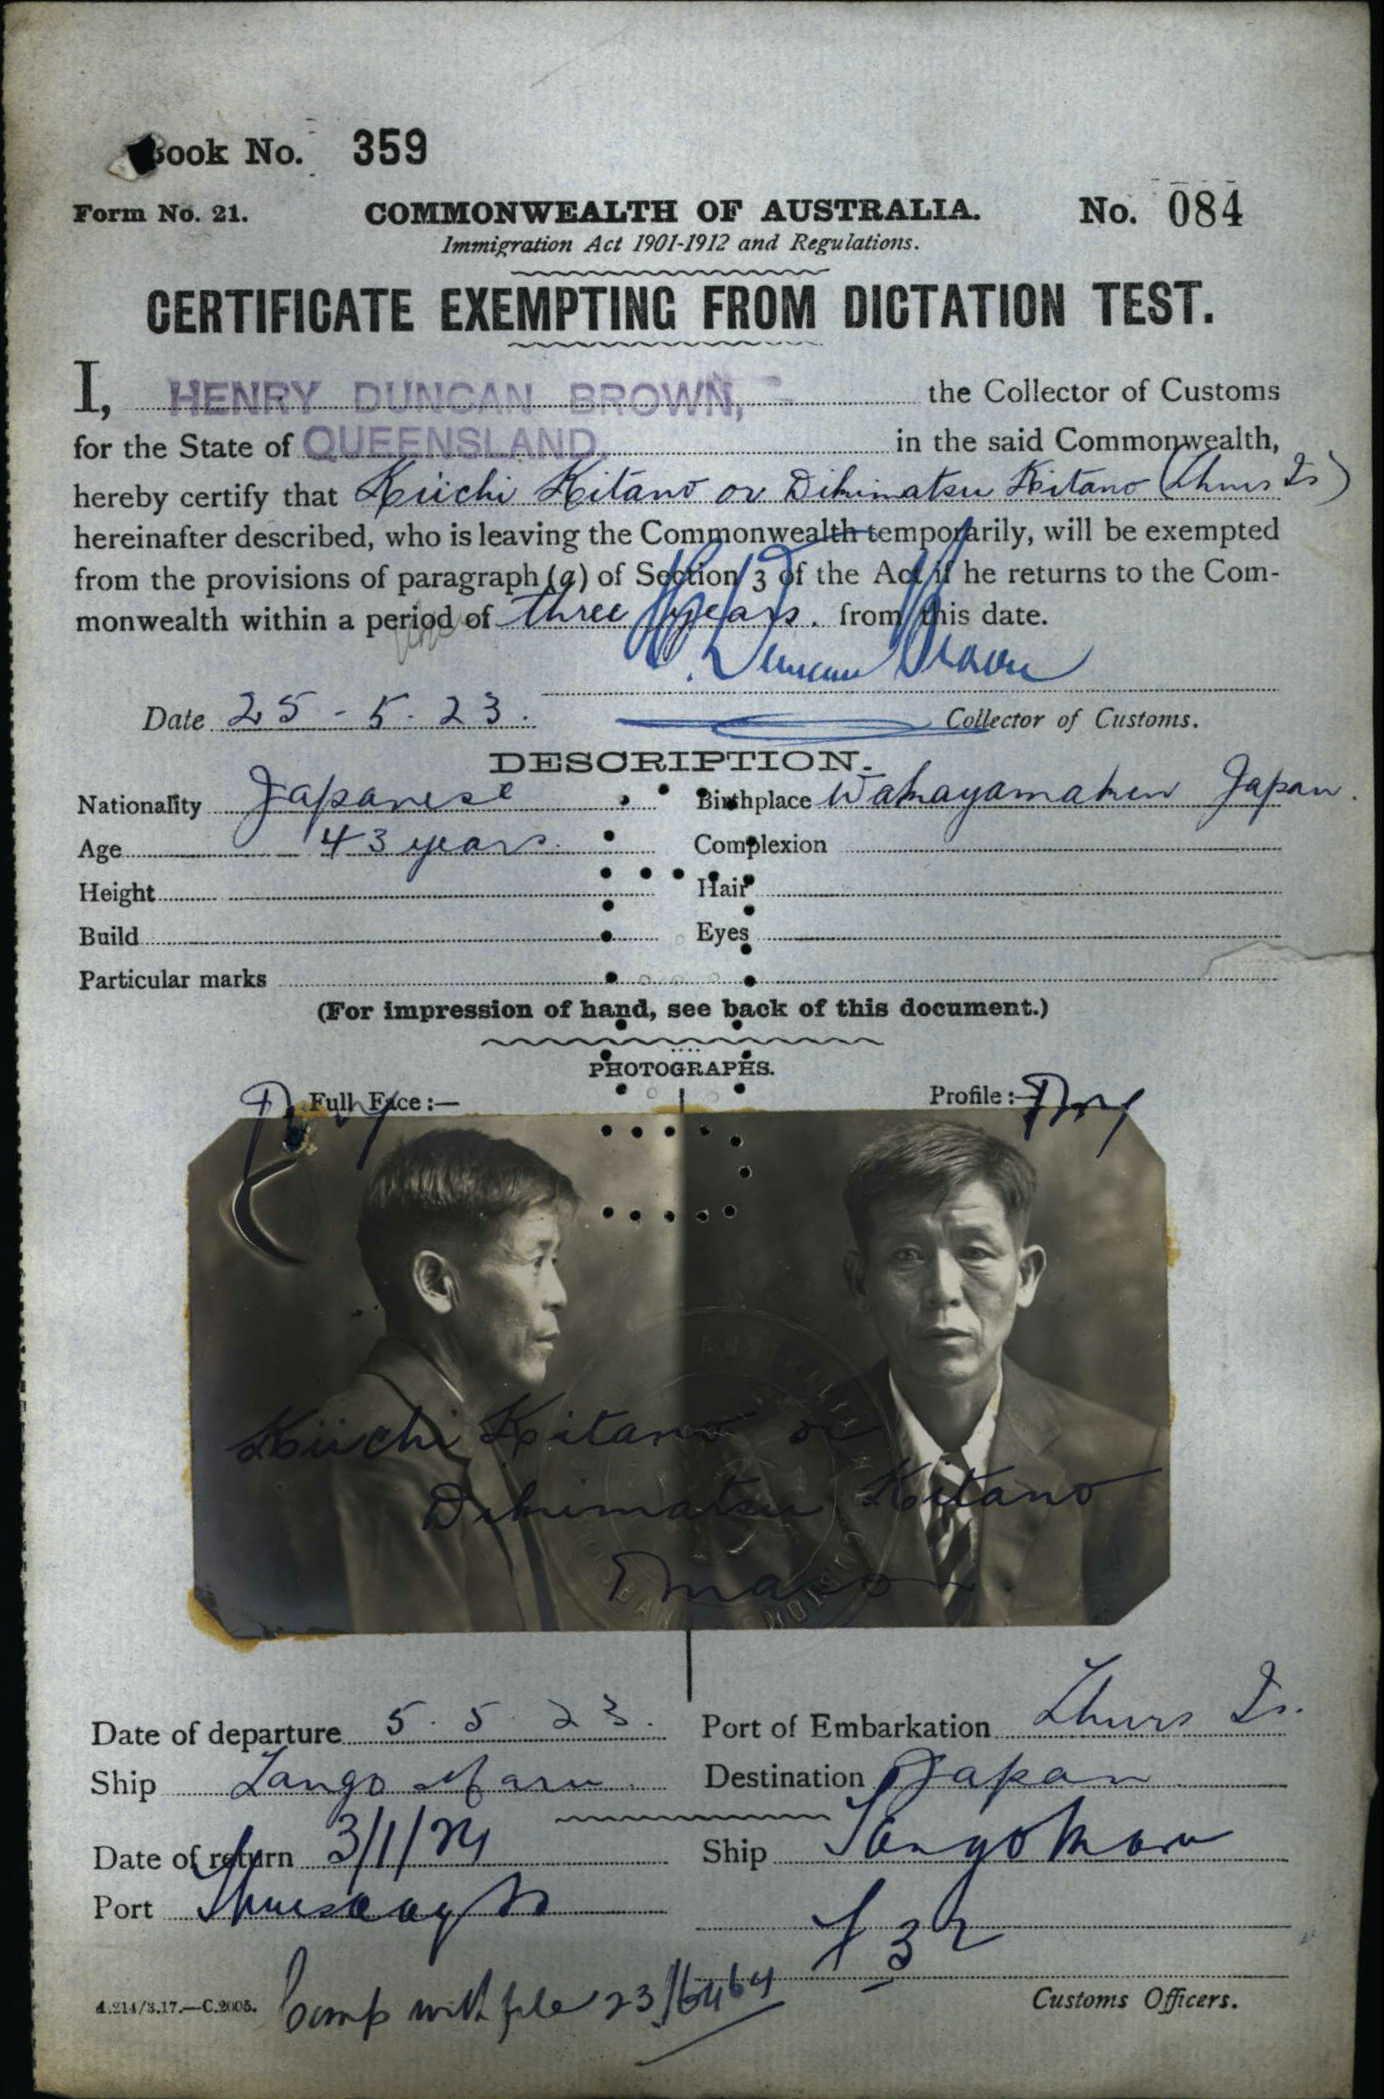 Book No. 359
Form No. 21. COMMONWEALTH OF AUSTRALIA. No. 084
Immigration Act 1901-1912 and Regulations.
CERTIFICATE EXEMPTING FROM DICTATION TEST.
I, HENRY DUNCAN BROWN, the Collector of Customs
for the State of QUEENSLAND. in the said Commonwealth,
hereby certify that Kiichi Kitano or Dikimatsu Kitano (Thurs Is)
hereinafter described, who is leaving the Commonwealth temporarily, will be exempted
from the provisions of paragraph (a) of Section 3 of the Act if he returns to the Com-
monwealth within a period of three years. from this date.
H. Duncan Brown
Date 25-5-23. Collector of Customs.
DESCRIPTION.
Nationality Japanese Birthplace Wakayamaken Japan.
Age 43 years. Complexion
Height Hair
Build Eyes
Particular marks
(For impression of hand, see back of this document.)
PHOTOGRAPHS.
Full Face:— Profile:—
Kiichi Kitano or
Dikimatsu Kitano
Date of departure 5.5.23. Port of Embarkation Thurs Is.
Ship Tango Maru. Destination Japan
Date of return 3/1/24 Ship Tango Maru
Port Thursday Is
Comp with file 23/6464
4.214/3.17.—C.2005. Customs Officers.